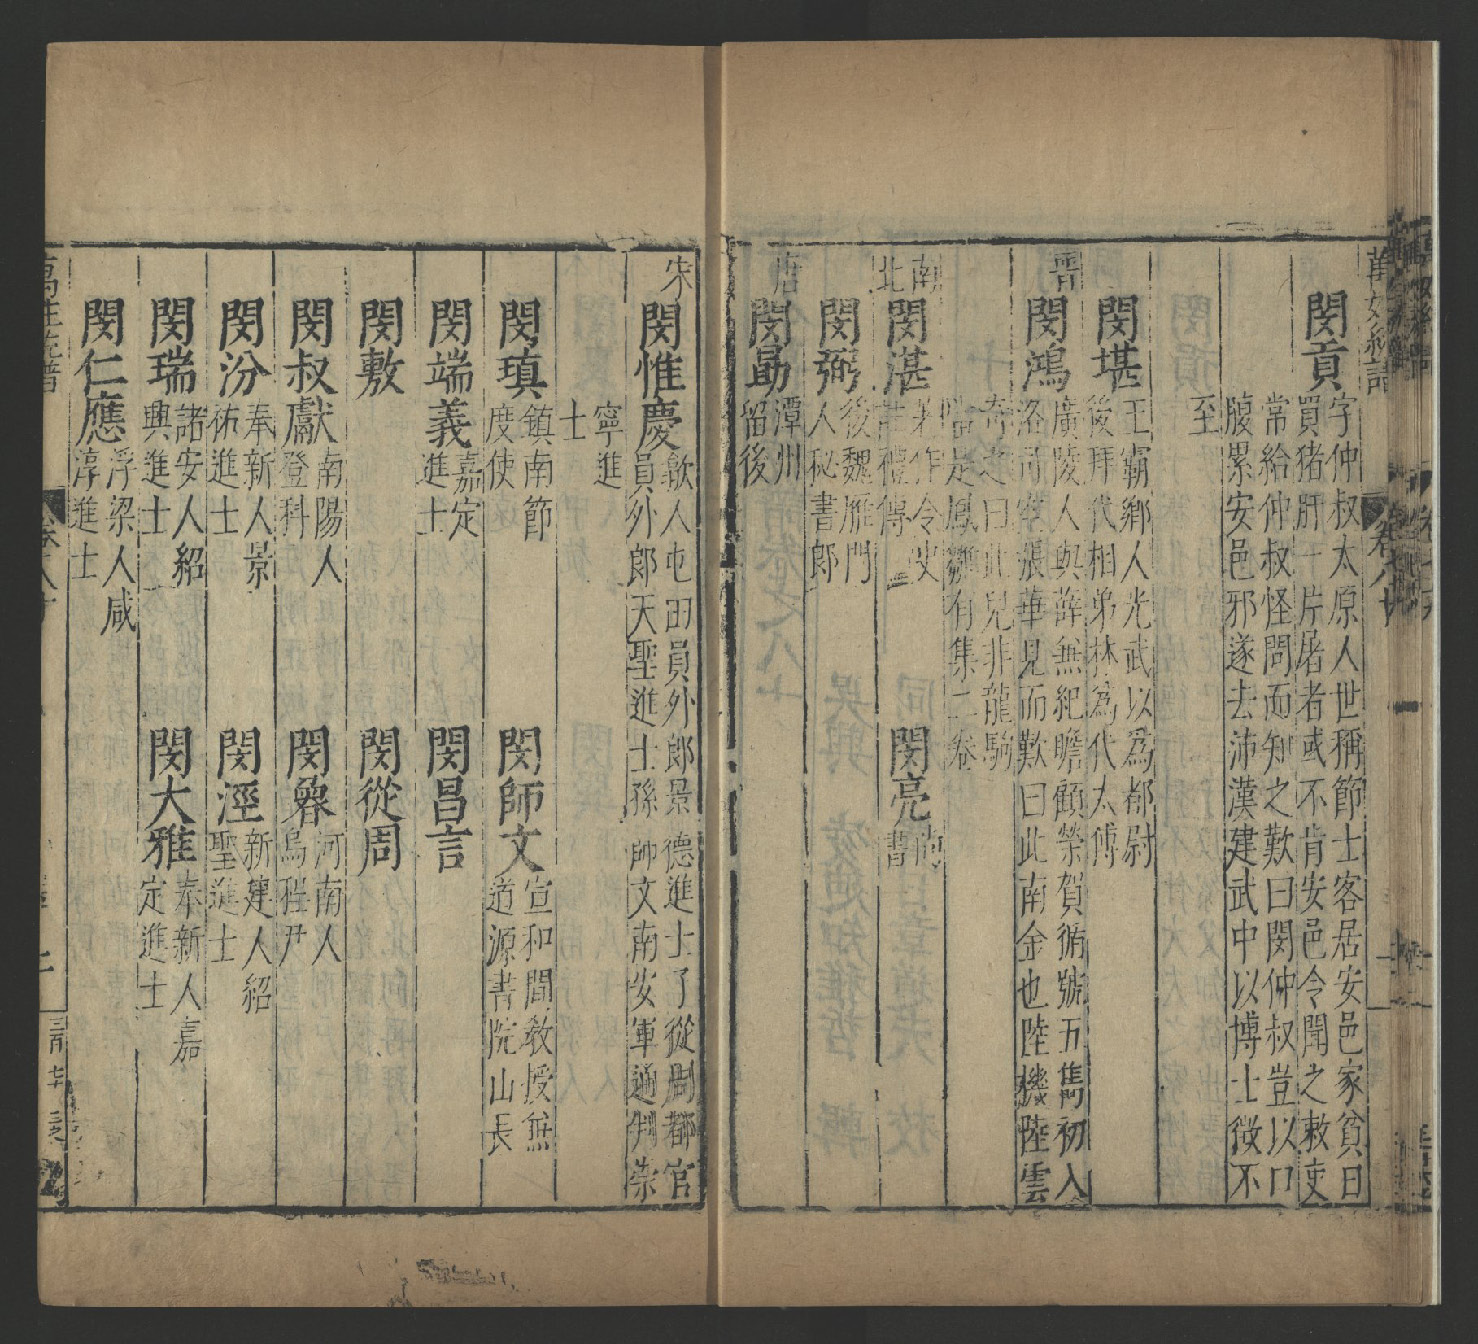 萬姓統譜
卷之八十
閔貢
字仲叔太原人世稱節士客居安邑家貧日
買猪肝一片屠者或不肯安邑令聞之敕吏
常給仲叔怪問而知之歎曰閔仲叔豈以口
腹累安邑邪遂去沛漢建武中以博士徵不
至
閔堪
王霸鄉人光武以為都尉
後拜代相弟林為代太傅
晉
閔鴻
廣陵人與薛無紀瞻顧榮賀循號五雋初入
洛司空張華見而歎曰此南金也陸機陸雲
奇之曰此兒非龍駒
當是鳳雛有集二卷
南北
閔湛
著作令史
註禮傳
閔亮
閔弼
後魏雁門
人秘書郎
唐
閔勗
潭州
留後
宋
閔惟慶
歙人屯田員外郎景德進士子從周都官
員外郎天聖進士孫師文南安軍通判崇
寧進
士
閔瑱
鎮南節
度使
閔師文
宣和間教授無
道源書院山長
閔端義
嘉定
進士
閔昌言
閔敷
閔從周
閔叔獻
南陽人
登科
閔𥠖
河南人
烏程尹
閔汾
奉新人景
祐進士
閔溼
新建人紹
聖進士
閔瑞
諸安人紹
興進士
閔大雅
奉新人嘉
定進士
閔仁應
浮梁人咸
淳進士
萬姓統譜
卷之八十
二